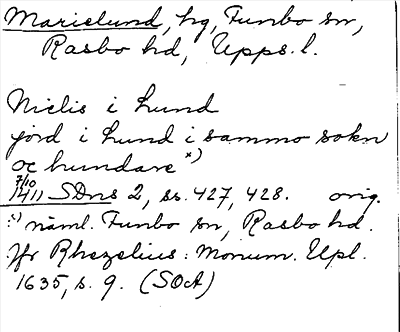 Marielund, hg, Funbo sn,
Rasbo hd, Upps. l.
Niclis i Lund
jord i Lund i sammo sokn
oc hundare x)
7/10
1411 SDns 2, ss. 427, 428. orig.
x) näml. Funbo sn, Rasbo hd.
Jfr Rhezelius: Monum. Upl.
1635, s. 9. (SOA)